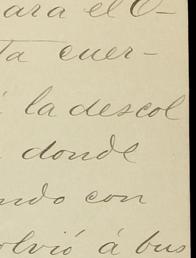 ara el O-
ta cuer-
la descol
donde
ndo con
olvió á bus